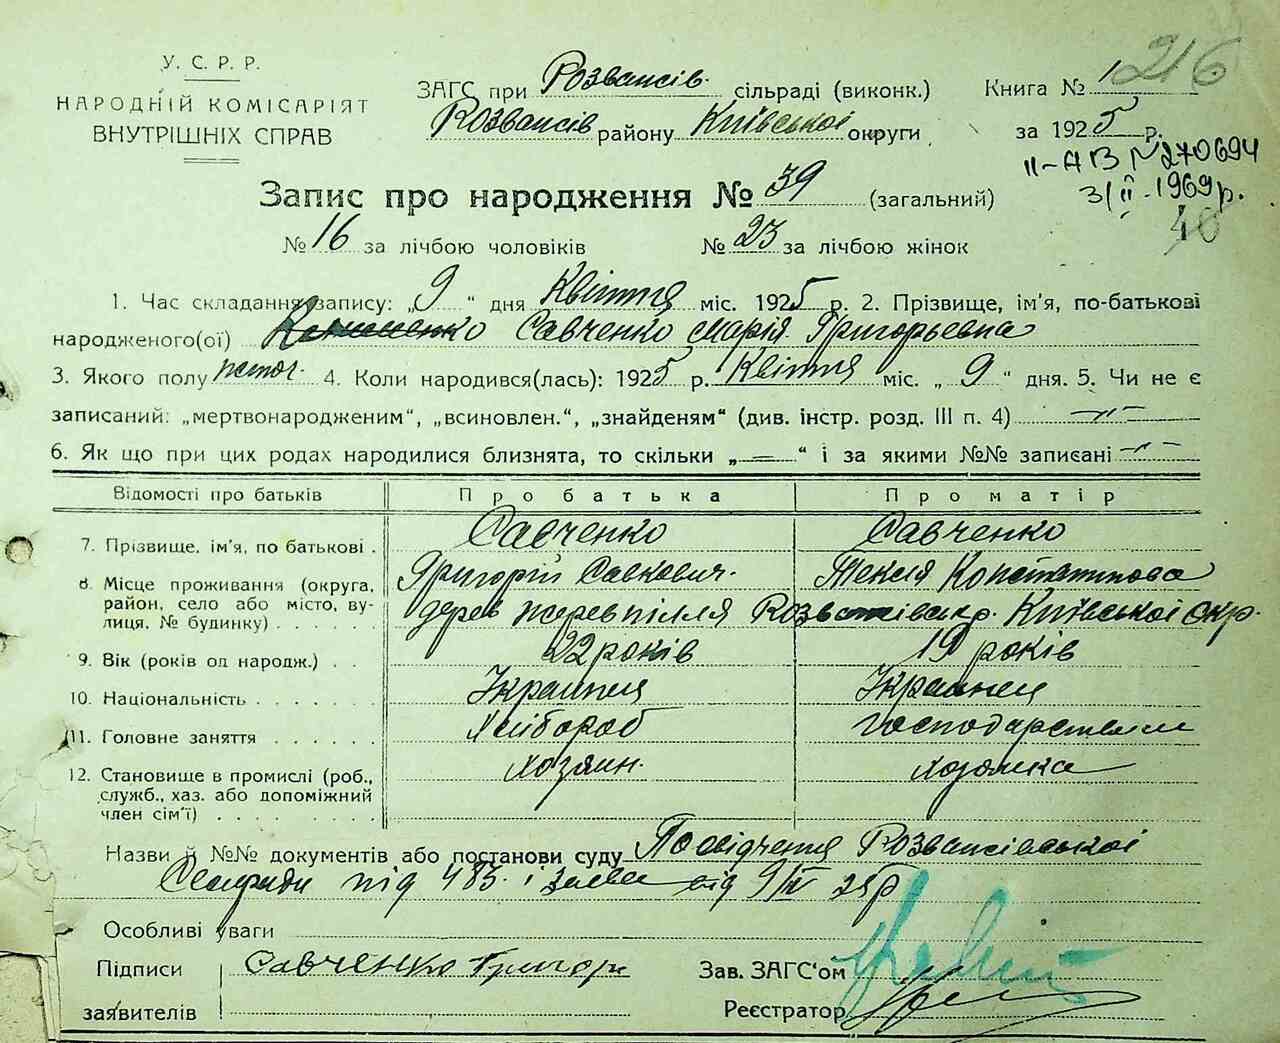 У. С. Р. Р.
НАРОДНІЙ КОМІСАРІЯТ
ВНУТРІШНІХ СПРАВ
ЗАГС при Розважів. сільраді (виконк.)
Розважів району Київської округи
Книга № 1 216
за 1925 р.
II-АВ № 270694
3/II-1969 р.
40
Запис про народження № 39 (загальний)
№ 16 за лічбою чоловіків № 23 за лічбою жінок
1. Час складання запису: „ 9 “ дня Квітня міс. 1925 р. 2. Прізвище, ім'я, по-батькові
народженого(ої) Савченко Марія Григорьевна
3. Якого полу 4. Коли народився(лась): 1925 р. Квітня міс. „ 9 “ дня. 5. Чи не є
записаний: „мертвонародженим“, „всиновлен.“, „знайденям“ (див. інстр. розд. III п. 4) — " —
6. Як що при цих родах народилися близнята, то скільки „ — “ і за якими №№ записані — " —
Відомості про батьків Про батька Про матір
7. Прізвище, ім'я, по батькові . Савченко Савченко
Григорій Савкович. Текля Констатинова
8. Місце проживання (округа, район, село або місто, вулиця, № будинку) . . . . . дерев Жеревпілля Київської Окр.
9. Вік (років од народж.) . . 22 років 19 років
10. Національність . . . . . . . Украинец Украинец
11. Головне заняття . . . . . . Хлібороб
12. Становище в промислі (роб., служб., хаз. або допоміжний член сім'ї) . . . . . . . . . хозяин. хозяйка
Назви й №№ документів або постанови суду Посвідчення Розважівської
Сельради під 485. і заява від 9/IV 25 р
Особливі уваги
Підписи Савченко Григори Зав. ЗАГС'ом
заявителів Реєстратор